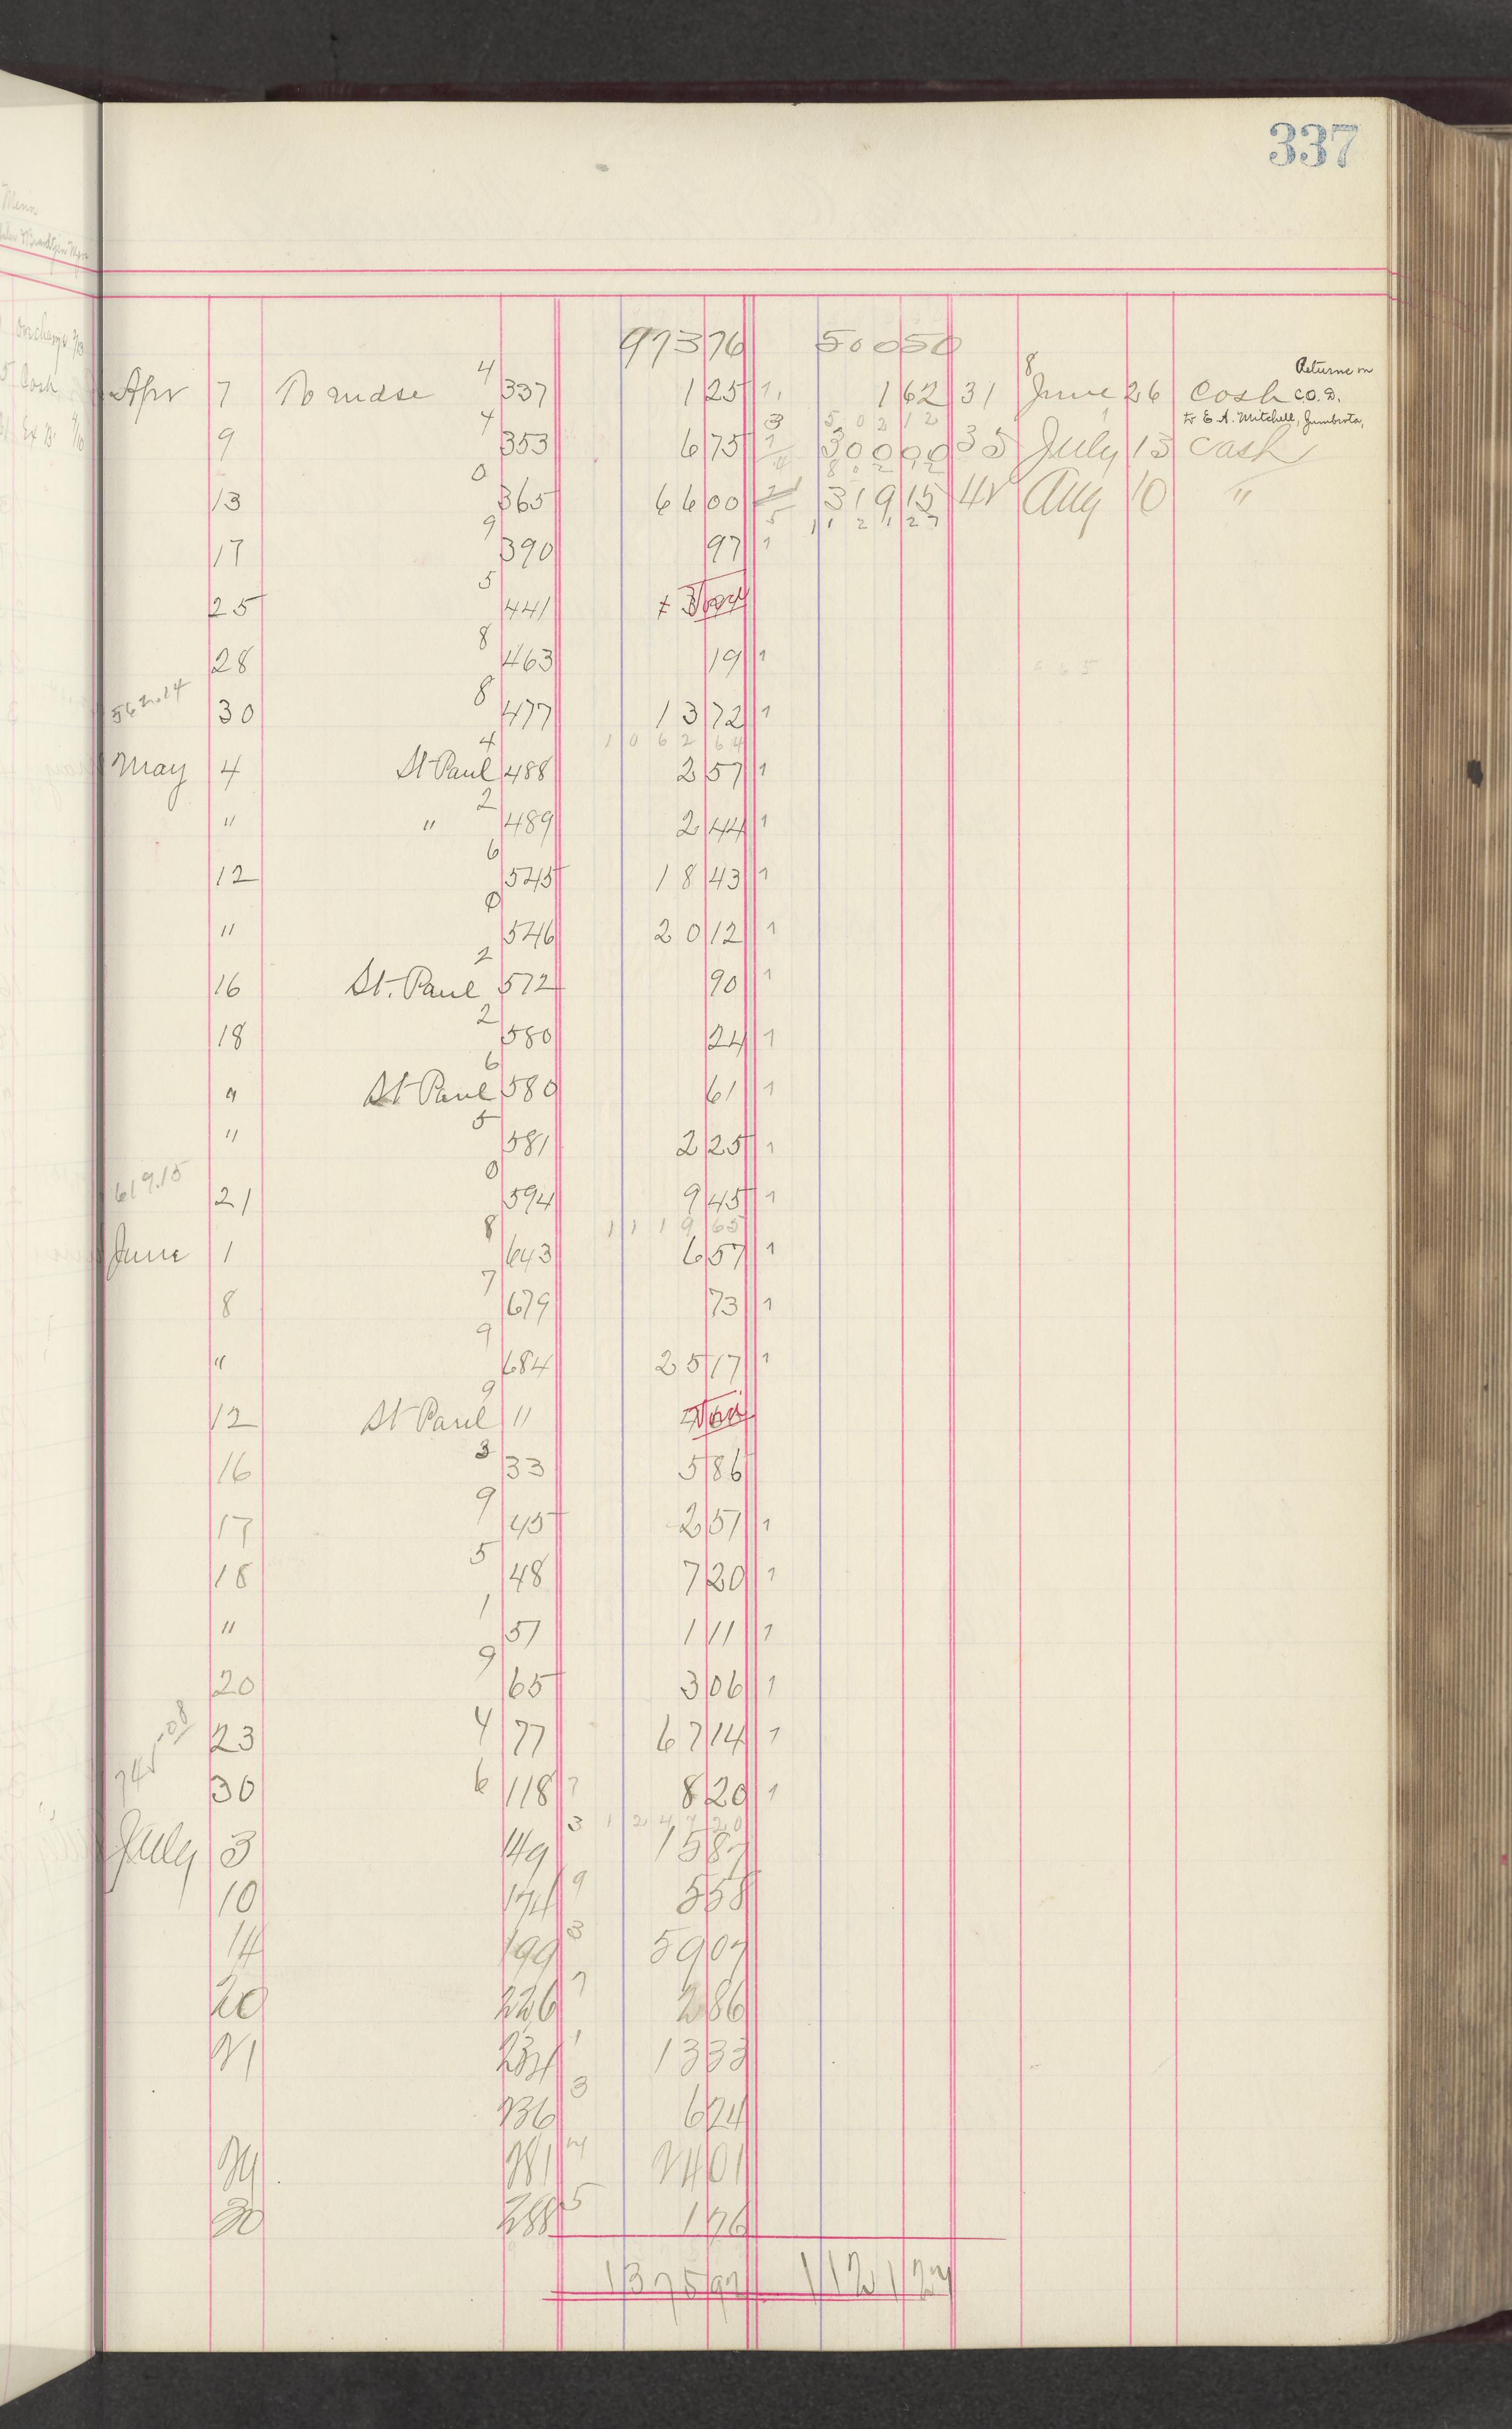 337
973 76 500 50
Apr 7 To mdse 4 337 1 25 1 1 62 31 8 June 26 Cash Returns on C.O.D. to E. A. Mitchell, Zumbrota,
3 502 12
9 4 353 6 75 1 300 00 35 July 13 Cash
802 12
13 0 365 66 00 319 15 42 Aug 10 "
5 1121 27
17 9 390 97 1
25 5 441
28 8 463 19 1
562.14 30 8 477 13 72 1
1062 64
May 4 St Paul 4 488 2 57 1
" " 2 489 2 44 1
12 6 545 18 43 1
" 0 546 20 12 1
16 St. Paul 2 572 90 1
18 2 580 24 1
" St Paul 6 580 61 1
" 5 581 2 25 1
619.15 21 0 594 9 45 1
1119 65
June 1 8 643 6 57 1
8 7 679 73 1
" 9 684 25 17 1
12 St Paul 9 11
16 3 33 5 86
17 9 45 2 51 1
18 5 48 7 20 1
" 1 57 1 11 1
20 9 65 3 06 1
23 4 77 67 14 1
30 6 118 8 20 1
1247 20
July 3 149 3 15 87
10 174 9 5 58
14 199 3 59 07
20 226 7 2 86
21 234 1 13 33
236 3 6 24
281 24 01
30 288 5 1 76
1375 92 1121 27